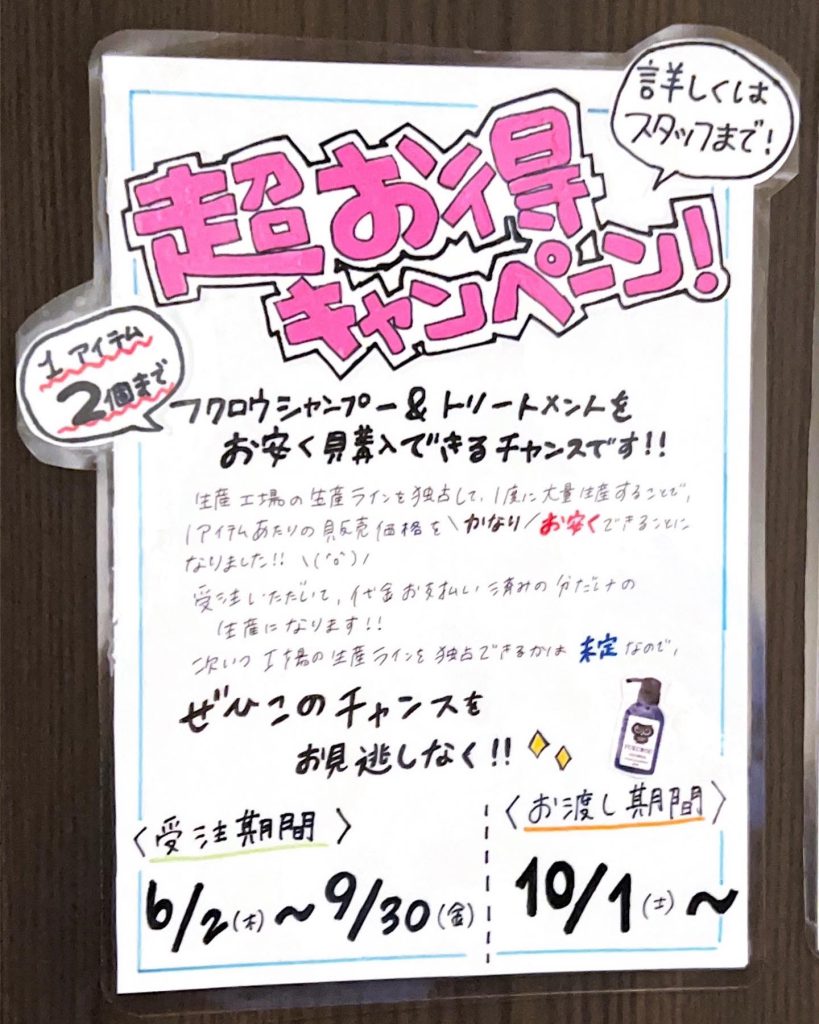 詳しくは
スタッフまで!
超お得
キャンペーン!
1アイテム
2個まで
フクロウシャンプー&トリートメントを
お安く購入できるチャンスです!!
生産工場の生産ラインを独占して、1度に大量生産することで、
1アイテムあたりの販売価格を\かなり/お安くできることに
なりました!! \(^o^)/
受注いただいて、代金お支払い済みの分だけの
生産になります!!
次いつ工場の生産ラインを独占できるかは未定なので、
ぜひこのチャンスを
お見逃しなく!!
〈受注期間〉
6/2(木)~9/30(金)
〈お渡し期間〉
10/1(土)~